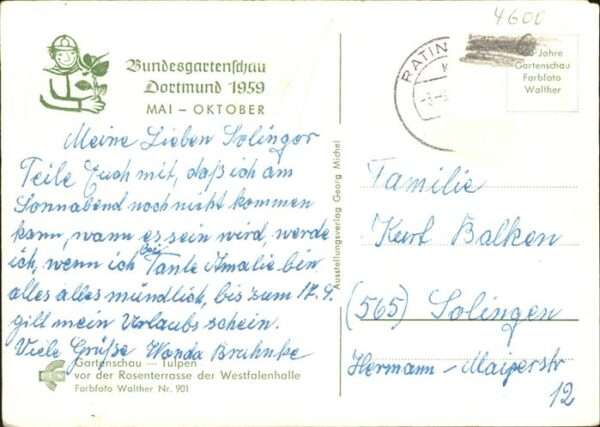 4600
Bundesgartenschau
Dortmund 1959
MAI – OKTOBER
RATIN
Jahre
Gartenschau
Farbfoto
Walther
Meine Lieben Solinger
Teile Euch mit, daß ich am
Sonnabend noch nicht kommen
kann, wann es sein wird, werde
ich, wenn ich bei Tante Amalie bin
alles alles mündlich, bis zum 17.9.
gilt mein Urlaubsschein.
Viele Grüße Wanda Bruhnke
Gartenschau — Tulpen
vor der Rosenterrasse der Westfalenhalle
Farbfoto Walther Nr. 901
Ausstellungsverlag Georg Michel
Familie
Kurt Balken
(565) Solingen
Hermann-Meiperstr
12